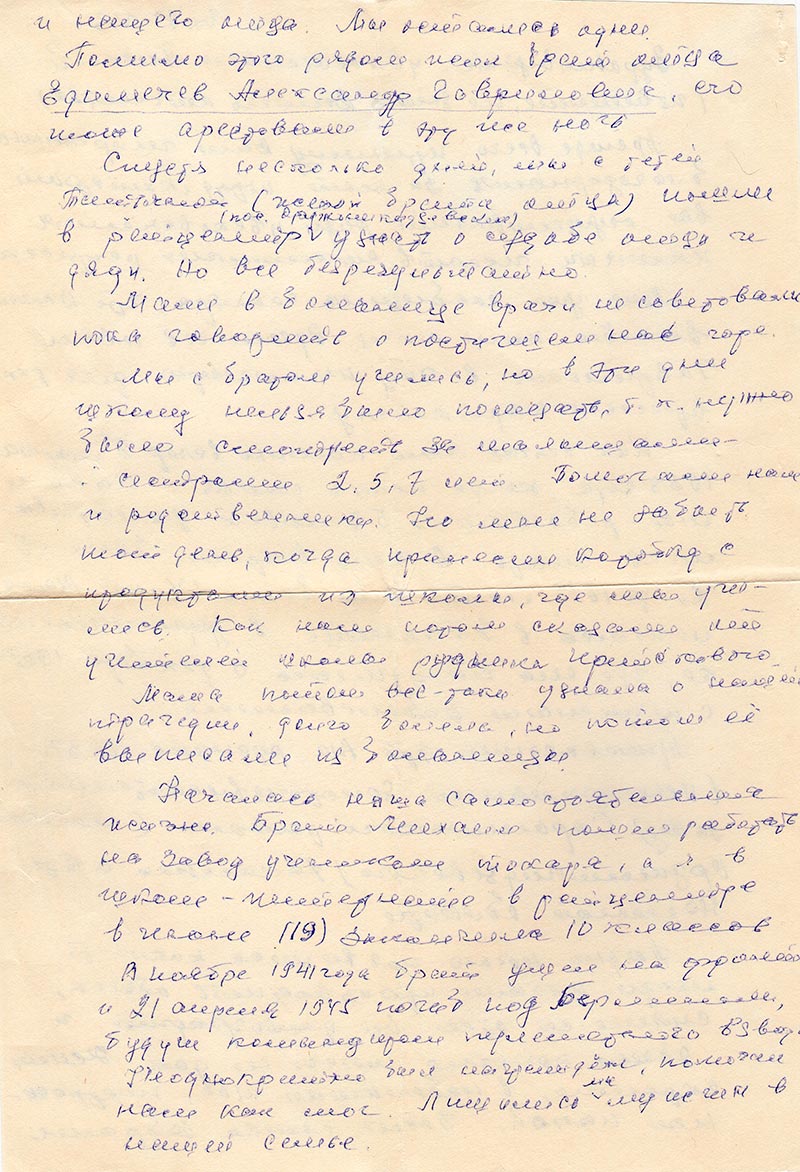 и нашего отца. Мы остались одни.
Помимо этого рядом жил брат отца
Едимечев Александр Гаврилович, его
тоже арестовали в эту же ночь
Спустя несколько дней, мы с тётей
(женой брата отца) пошли
(пос. Дружиниха)
в райцентр узнать о судьбе отца и
дяди. Но все безрезультатно.
Маме в больнице врачи не советовали
пока говорить о постигшем нас горе.
Мы с братом учились, но в эти дни
школу нельзя было посещать, т.к. нужно
было смотреть за малышами-
сёстрами 2, 5, 7 лет. Помогали нам
и родственники. Но мне не забыть
тот день, когда принесли коробку с
продуктами из школы, где мы учи-
лись. Как нам потом сказали от
учителей школы рудника
Мама потом всё-таки узнала о нашей
трагедии, долго болела, но потом её
выписали из больницы.
Началась наша самостоятельная
жизнь. Брат Михаил пошел работать
на завод учеником токаря, а я в
школе-интернате в райцентре
в июне (19) закончила 10 классов
В ноябре 1941 года брат ушел на фронт
и 21 апреля 1945 погиб под Берлином,
будучи командиром взвода.
Неоднократно был награждён, помогал
нам как мог. Лишились мы мужчин в
нашей семье.